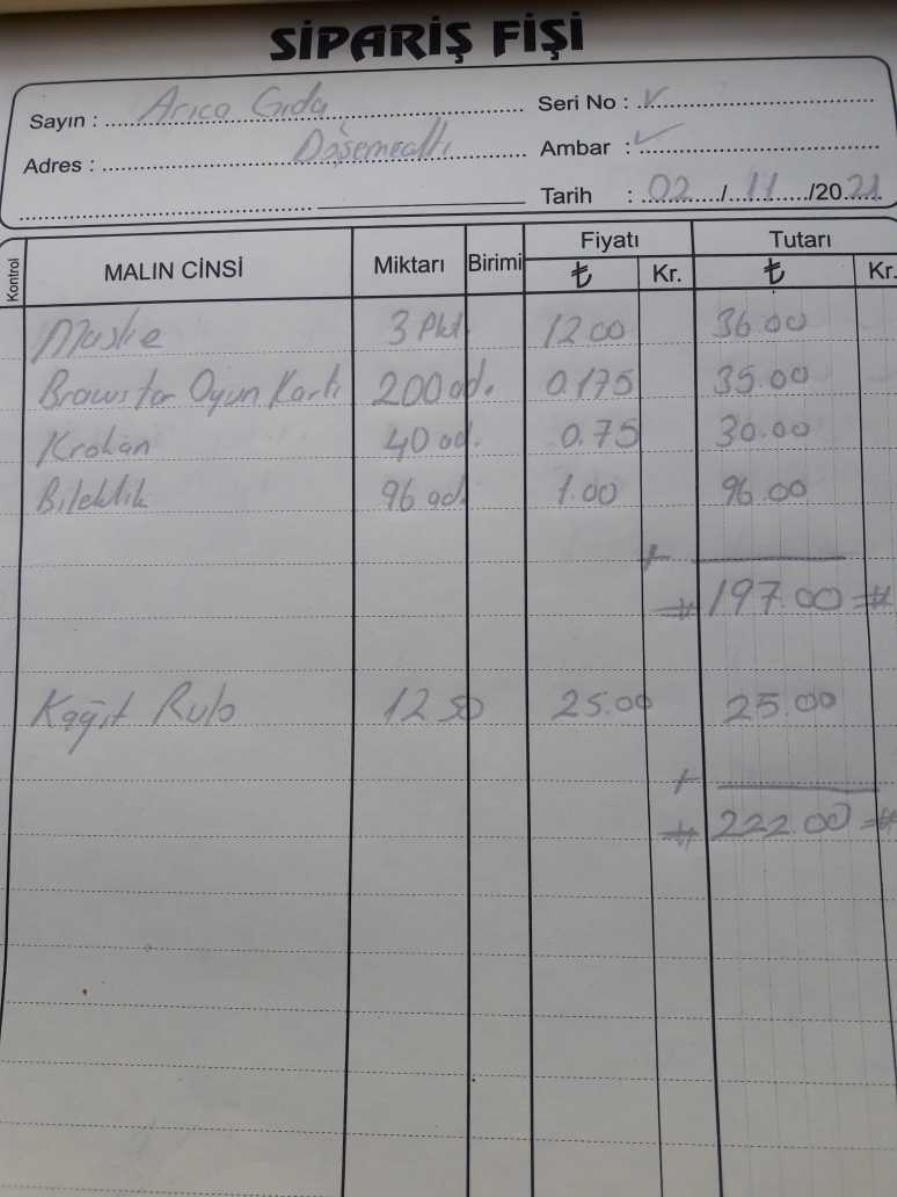 SİPARİŞ FİŞİ
Sayın : Arıca Gıda Seri No :
Adres : Döşemealtı Ambar :
Tarih : 02/11/2021
Kontrol MALIN CİNSİ Miktarı Birimi Fiyatı ₺ Kr. Tutarı ₺ Kr.
Maske 3 Pkt 12 00 36.00
Brawstar Oyun Kartı 200 ad. 0.175 35.00
40 ad. 0.75 30.00
Bileklik 96 ad. 1.00 96.00
+
# 197.00 #
Kağıt Rulo 12 50 25.00 25.00
+
# 222.00 #